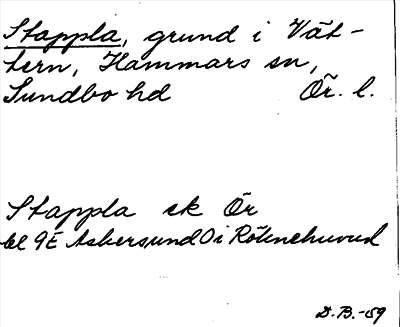 Stappla, grund i Vät-
tern, Hammars sn,
Sundbo hd Ör. l.
Stappla ek Ör
bl 9E Askersund O i Röknehuvud
D.B.-59